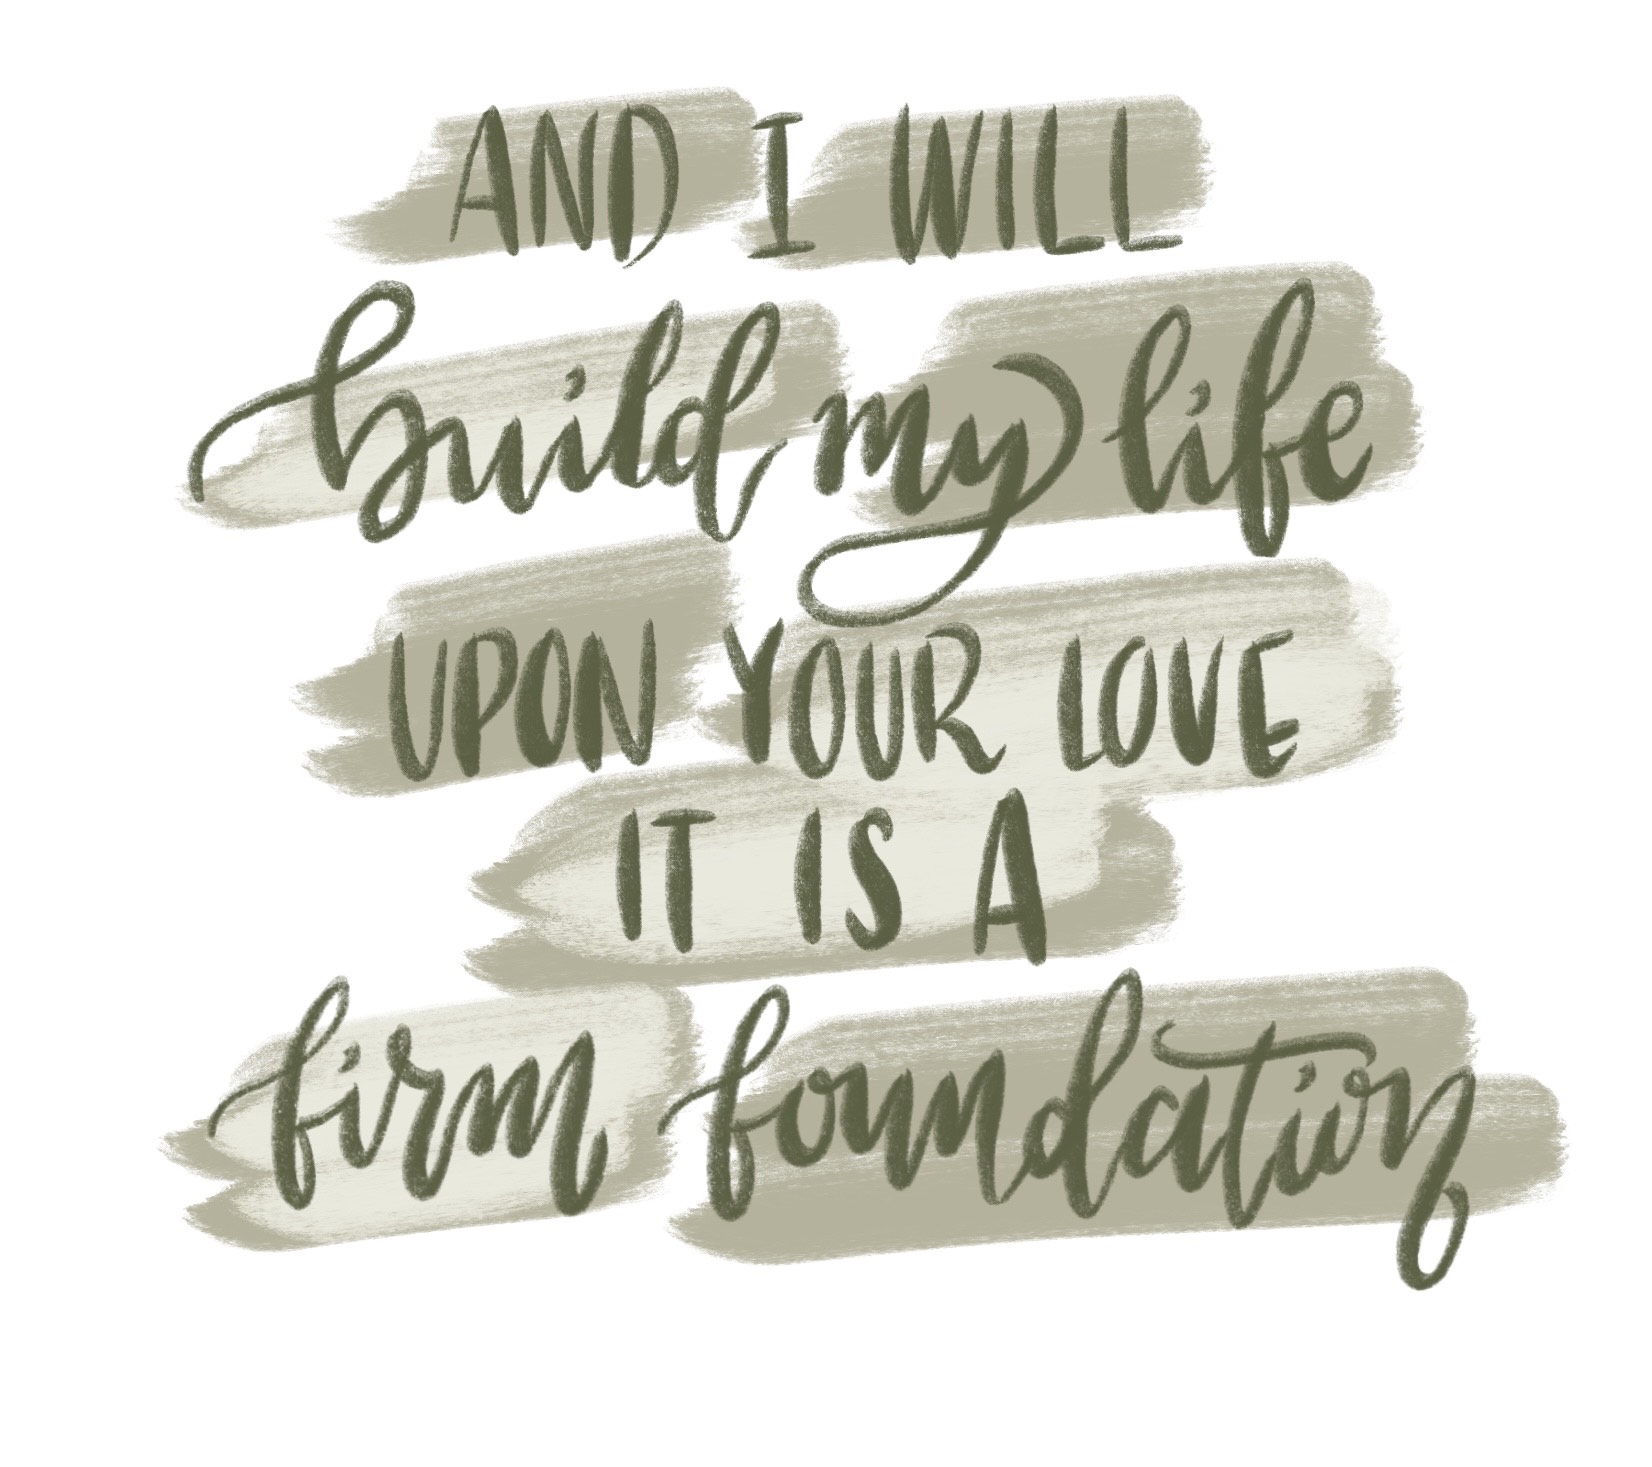 AND I WILL
build my life
UPON YOUR LOVE
IT IS A
firm foundation